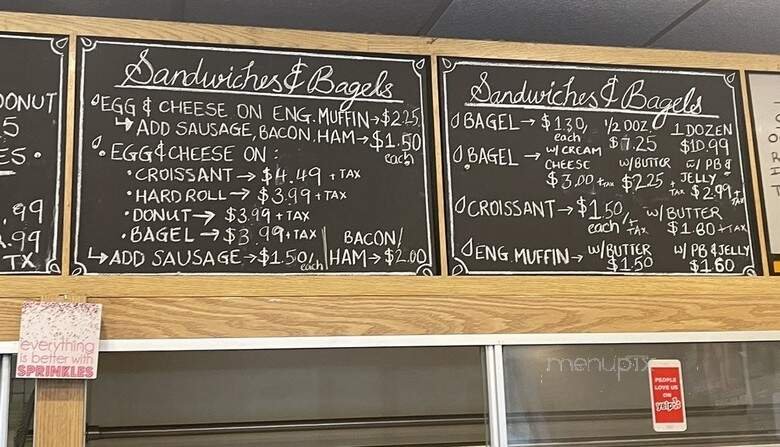 DONUT
5
ES.
.99
.99
TX
Sandwiches & Bagels
EGG & CHEESE ON ENG. MUFFIN→$2.25
↳ADD SAUSAGE, BACON, HAM→$1.50
each
EGG & CHEESE ON :
•CROISSANT→$4.49 +TAX
•HARD ROLL→$3.99+TAX
•DONUT→$3.99+TAX
•BAGEL→$3.99+TAX
↳ADD SAUSAGE→$1.50/each
BACON/
HAM→$2.00
Sandwiches & Bagels
BAGEL→$1.30, each
1/2 DOZ. $7.25
1 DOZEN $10.99
BAGEL→ W/CREAM CHEESE $3.00+TAX
W/BUTTER $2.25+TAX
W/PB & JELLY $2.99+TAX
CROISSANT→$1.50/each +TAX
W/BUTTER $1.80+TAX
ENG. MUFFIN→ W/BUTTER $1.50
W/ PB & JELLY $1.60
everything
is better with
SPRINKLES
menupix
PEOPLE
LOVE US
ON
yelp